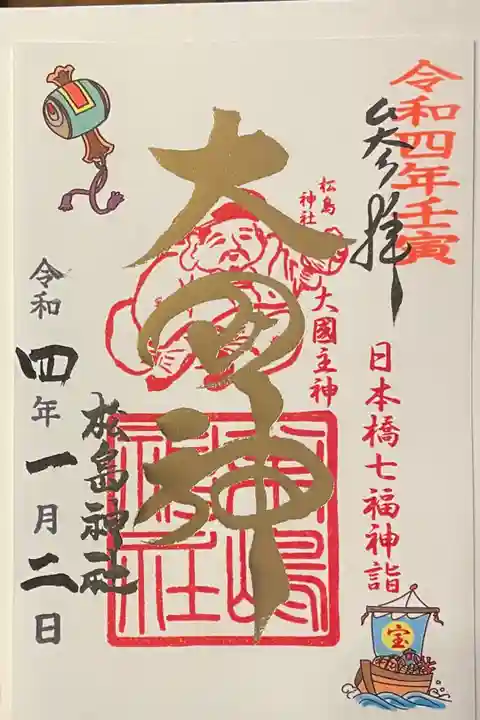 令和四年壬寅
参拝
日本橋七福神詣
宝
松島
神社
大國主神
大黒神
松島神社
松島神社
令和四年一月二日